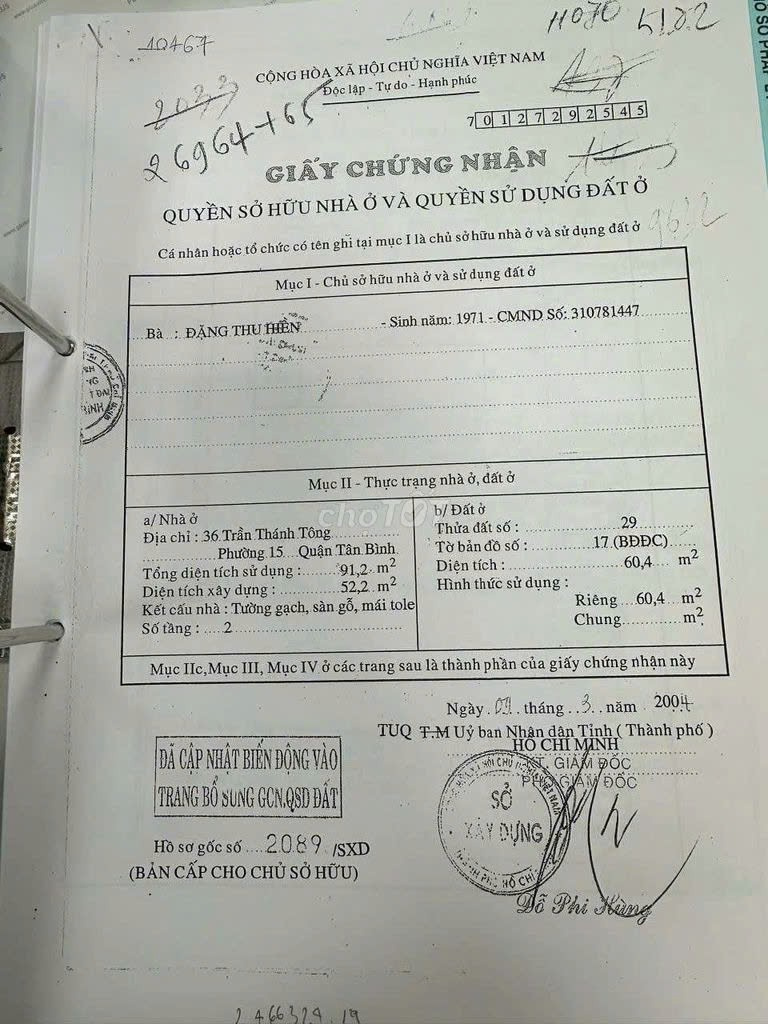 10467
H070 5122
2033
26964+65
CỘNG HÒA XÃ HỘI CHỦ NGHĨA VIỆT NAM
Độc lập - Tự do - Hạnh phúc
70127292545
GIẤY CHỨNG NHẬN
QUYỀN SỞ HỮU NHÀ Ở VÀ QUYỀN SỬ DỤNG ĐẤT Ở
9632
Cá nhân hoặc tổ chức có tên ghi tại mục I là chủ sở hữu nhà ở và sử dụng đất ở
Mục I - Chủ sở hữu nhà ở và sử dụng đất ở
Bà : ĐẶNG THU HIỀN - Sinh năm: 1971 - CMND Số: 310781447
Mục II - Thực trạng nhà ở, đất ở
a/ Nhà ở
Địa chỉ : 36 Trần Thánh Tông
Phường 15 Quận Tân Bình
Tổng diện tích sử dụng : 91,2 m2
Diện tích xây dựng : 52,2 m2
Kết cấu nhà : Tường gạch, sàn gỗ, mái tole
Số tầng : 2
b/ Đất ở
Thửa đất số : 29
Tờ bản đồ số : 17 (BĐĐC)
Diện tích : 60,4 m2
Hình thức sử dụng :
Riêng 60,4 m2
Chung m2
choTỐT
Mục IIc, Mục III, Mục IV ở các trang sau là thành phần của giấy chứng nhận này
Ngày 09 tháng 3 năm 2004
TUQ T.M Uỷ ban Nhân dân Tỉnh ( Thành phố )
HỒ CHÍ MINH
KT. GIÁM ĐỐC
PHÓ GIÁM ĐỐC
SỞ
XÂY DỰNG
Đỗ Phi Hùng
ĐÃ CẬP NHẬT BIẾN ĐỘNG VÀO
TRANG BỔ SUNG GCN,QSD ĐẤT
Hồ sơ gốc số 2089 /SXD
(BẢN CẤP CHO CHỦ SỞ HỮU)